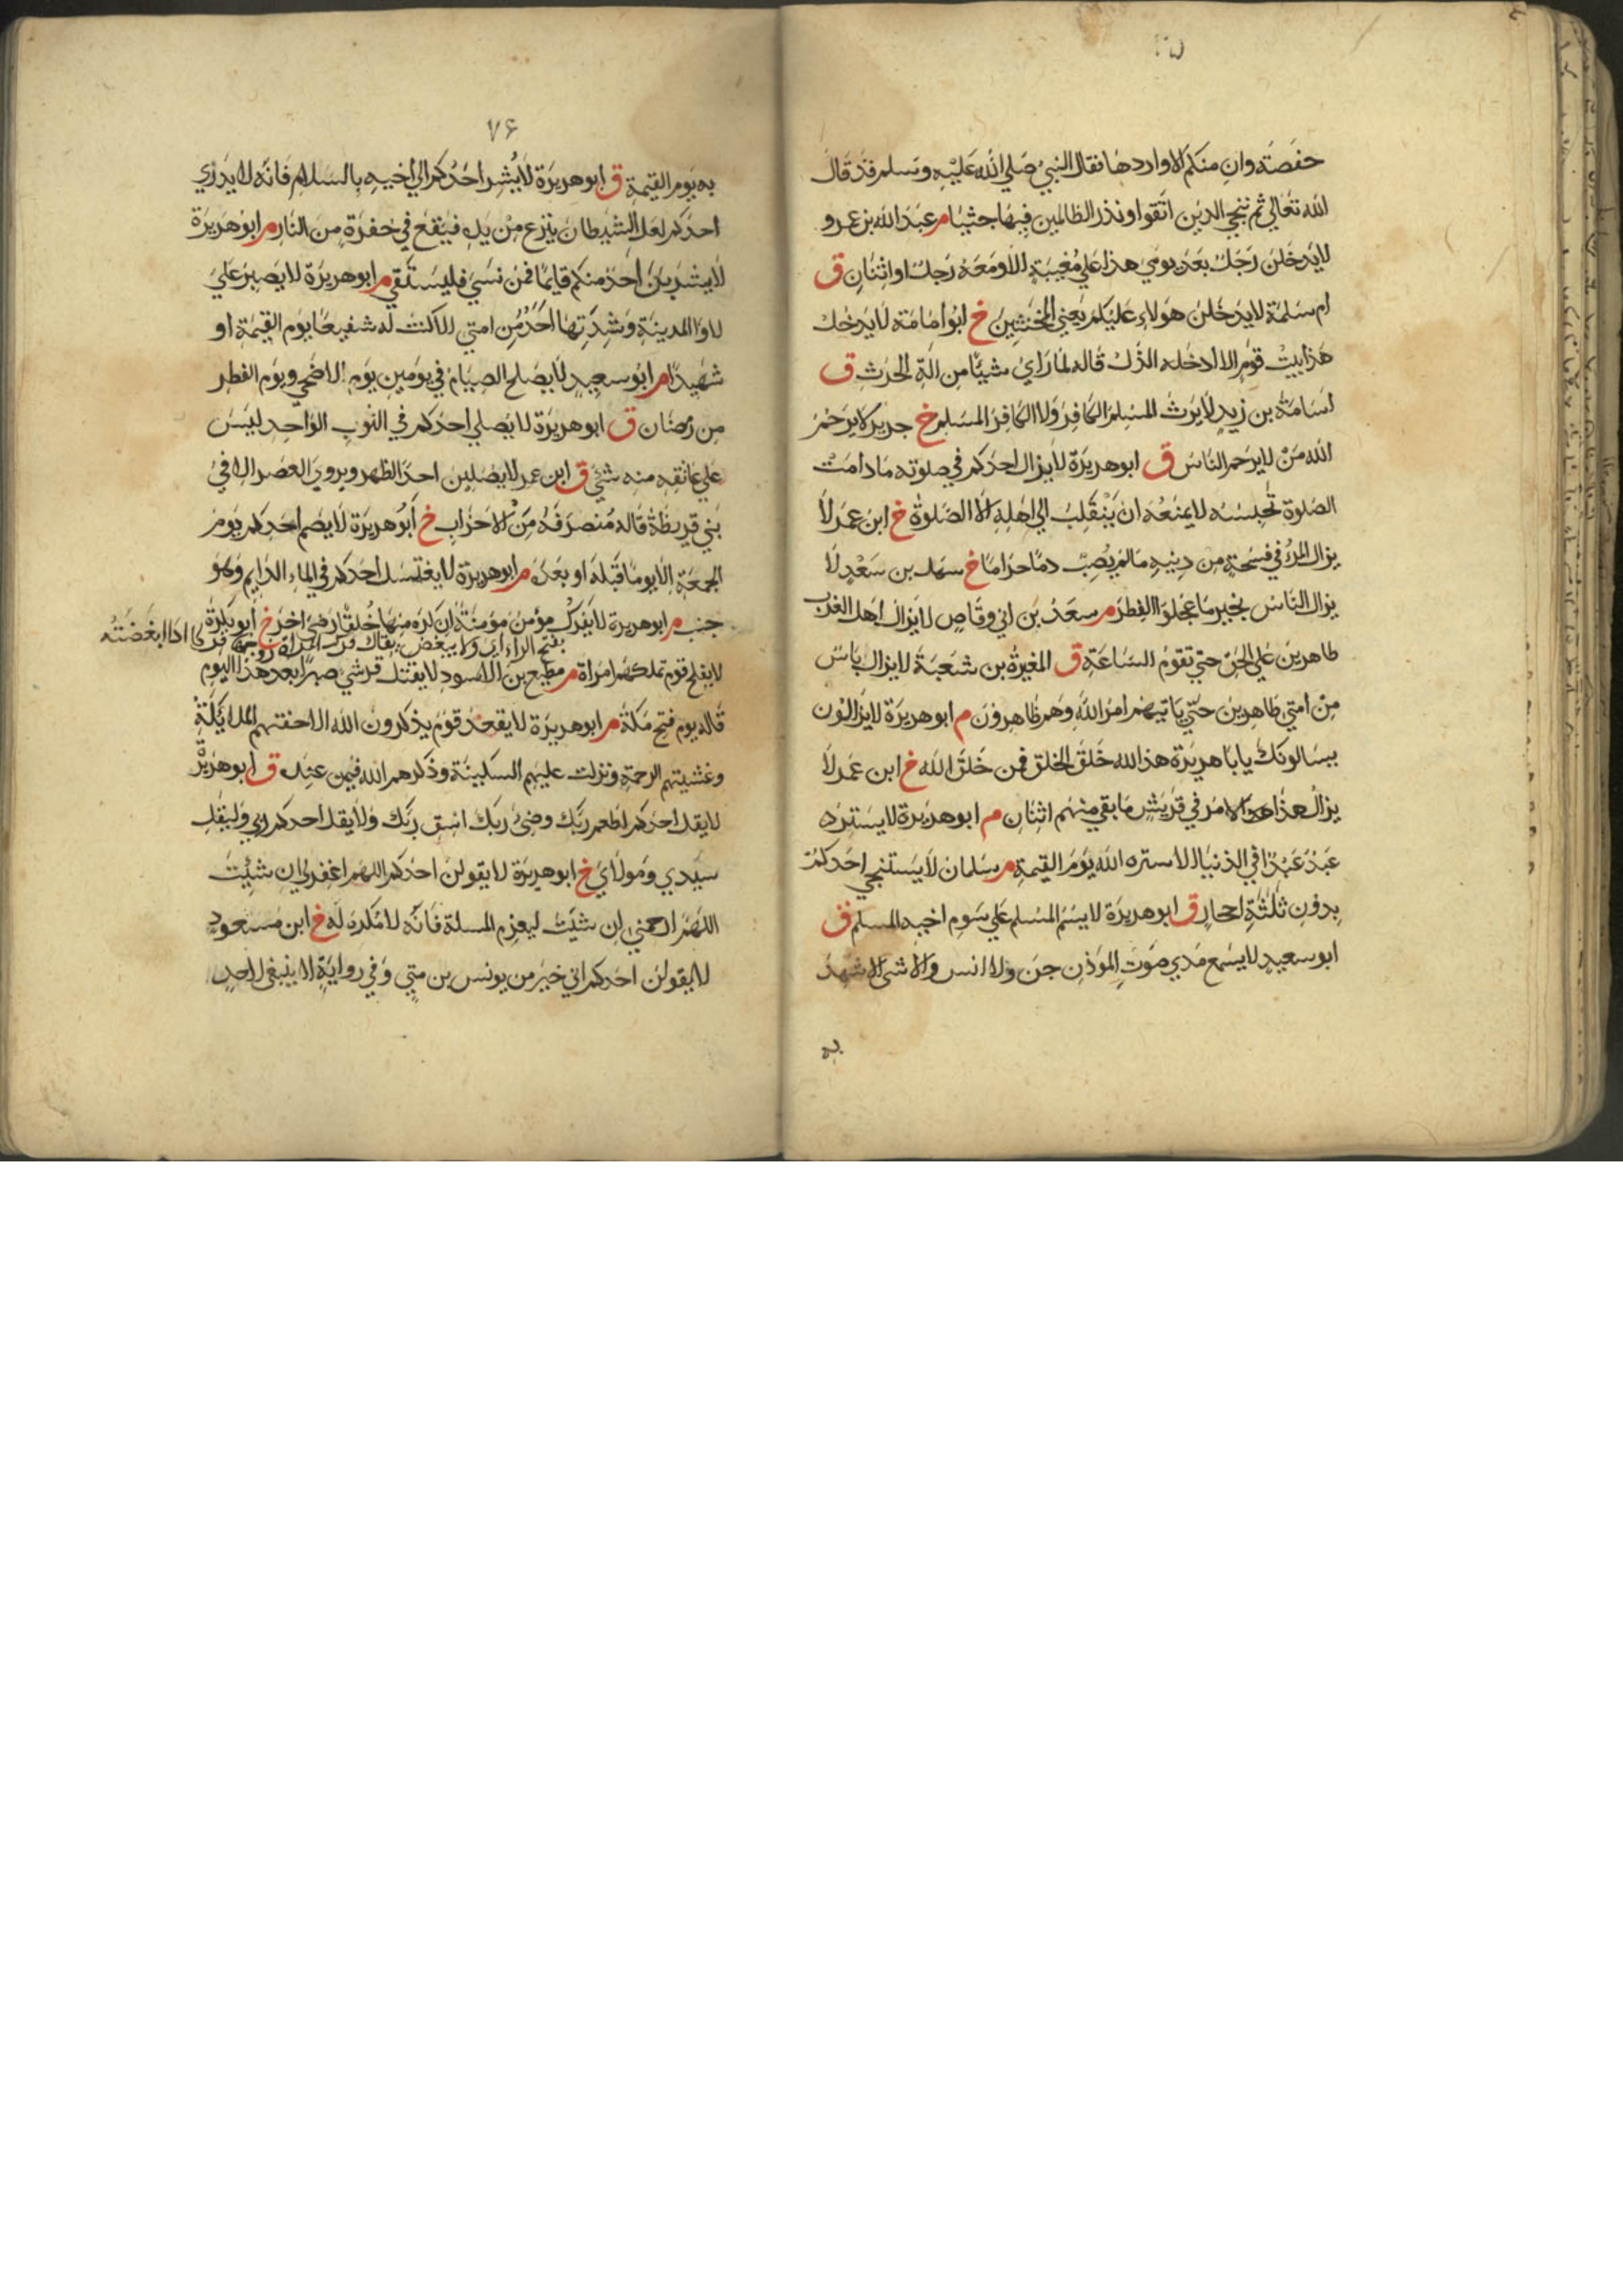 ٧٥
حفصة وان منكم الا واردها فقال النبي صلي الله عليه وسلم فقد قال
الله تعالي ثم ننجي الذين اتقوا ونذر الظالمين فيها جثيا م عبد الله بن عمرو
لا يدخلن رجل بعد يومي هذا علي مغيبة الا ومعه رجل او اثنان ق
ام سلمة لا يدخلن هولاء عليكم يعني المخنثين خ ابو امامة لا يدخل
هذا بيت قوم الا ادخله الذل قاله لما راي شيئا من الة الحرث ق
اسامة بن زيد لا يرث المسلم الكافر ولا الكافر المسلم خ جرير لا يرحم
الله من لا يرحم الناس ق ابو هريرة لا يزال احدكم في صلوته ما دامت
الصلوة تحبسه لا يمنعه ان ينقلب الي اهله الا الصلوة خ ابن عمر لا
يزال المرء في فسحة من دينه ما لم يصب دما حراما خ سهل بن سعد لا
يزال الناس بخير ما عجلوا الفطر م سعد بن ابي وقاص لا يزال اهل الغرب
ظاهرين علي الحق حتي تقوم الساعة ق المغيرة بن شعبة لا يزال ناس
من امتي ظاهرين حتي ياتيهم امر الله وهم ظاهرون م ابو هريرة لا يزالون
يسالونك يابا هريرة هذا الله خلق الخلق فمن خلق الله خ ابن عمر لا
يزال هذا الامر في قريش ما بقي منهم اثنان م ابو هريرة لا يستره
عبد عبدا في الدنيا الا ستره الله يوم القيمة م سلمان لا يستنجي احدكم
بدون ثلثة احجار ق ابو هريرة لا يسم المسلم علي سوم اخيه المسلم ق
ابو سعيد لا يسمع مدي صوت الموذن جن ولا انس ولا شئ الا شهد
به
٧٦
به يوم القيمة ق ابو هريرة لا يشر احدكم الي اخيه بالسلام فانه لا يدري
احدكم لعل الشيطان ينزع من يده فيقع في حفرة من النار م ابو هريرة
لا يشربن احد منكم قايما فمن نسي فليستقي م ابو هريرة لا يصبر علي
لاوا المدينة وشدتها احد من امتي الا كنت له شفيعا يوم القيمة او
شهيدا م ابو سعيد لا يصلح الصيام في يومين يوم الاضحي ويوم الفطر
من رمضان ق ابو هريرة لا يصلي احدكم في الثوب الواحد ليس
علي عاتقه منه شئ ق ابن عمر لا يصلين احد الظهر ويروي العصر الا في
بني قريظة قاله منصرفه من الاحزاب خ ابو هريرة لا يصم احدكم يوم
الجمعة الا يوما قبله او بعده م ابو هريرة لا يغتسل احدكم في الماء الدايم وهو
جنب م ابو هريرة لا يفرك مؤمن مؤمنة ان كره منها خلقا رضي اخر خ ابو بكرة
بفتح الراء اي ولا يبغض يقال فركت المراة زوجها اذا ابغضته
لا يفلح قوم تملكهم امراة م مطيع بن الاسود لا يقتل قرشي صبرا بعد هذا اليوم
قاله يوم فتح مكة م ابو هريرة لا يقعد قوم يذكرون الله الا حفتهم الملائكة
وغشيتهم الرحمة ونزلت عليهم السكينة وذكرهم الله فيمن عنده ق ابو هريرة
لا يقل احدكم اطعم ربك وضئ ربك اسق ربك ولا يقل احدكم ربي وليقل
سيدي ومولاي خ ابو هريرة لا يقولن احدكم اللهم اغفر لي ان شئت
اللهم ارحمني ان شئت ليعزم المسلة فانه لا مكره له خ ابن مسعود
لا يقولن احدكم اني خير من يونس بن متي وفي رواية لا ينبغي لاحد